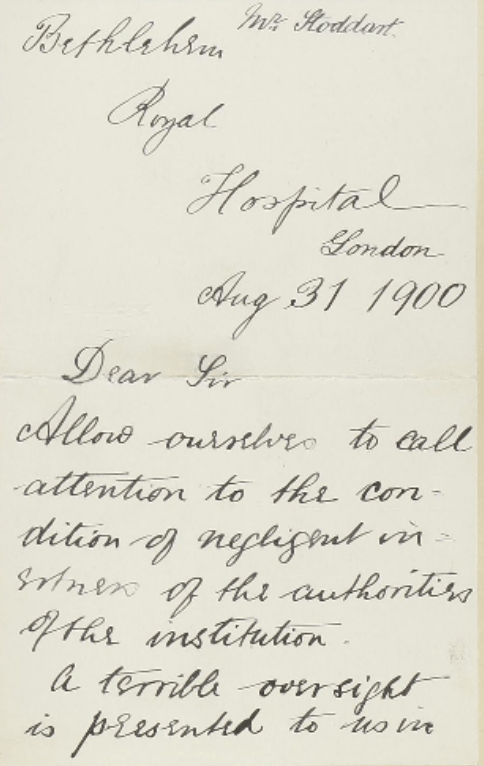 Mr. Stoddart.
Bethlehem
Royal
Hospital
London
Aug 31 1900
Dear Sir
Allow ourselves to call
attention to the con-
dition of negligent in=
ertness of the authorities
of the institution.
A terrible oversight
is presented to us in